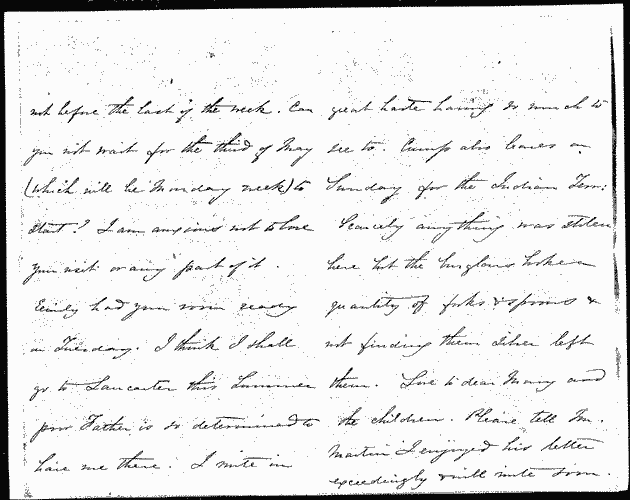 not before the last of the week. Can
you not wait for the third of May
(which will be Monday week) to
start? I am anxious not to lose
your visit or any part of it.
Emily had your room ready
on Tuesday. I think I shall
go to Lancaster this Summer
poor Father is so determined to
have me there. I write in
great haste having so much to
see to. Cump also leaves on
Sunday for the Indian Terr:
Scarcely anything was stolen
here but the burglars broke a
quantity of forks & spoons &
not finding them silver left
them. Love to dear Mary and
the children. Please tell
Martin I enjoyed his letter
exceedingly & will write soon.